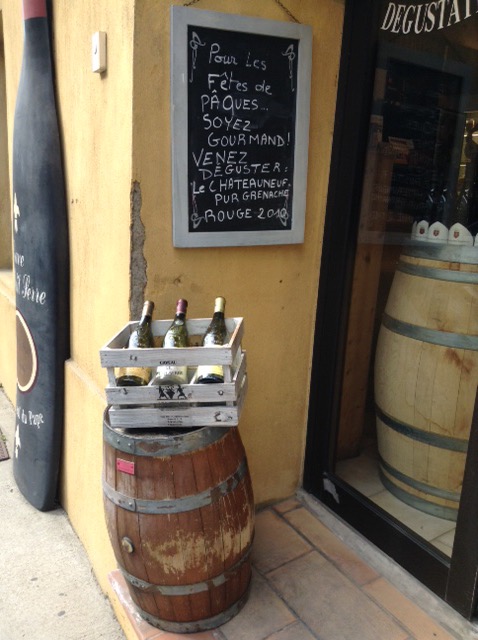 DEGUSTAT
Pour Les
Fêtes de
PÂQUES...
SOYEZ
GOURMAND!
VENEZ
DÉGUSTER:
Le CHÂTEAUNEUF
PUR GRENACHE
ROUGE 2010
Serre
du Pape